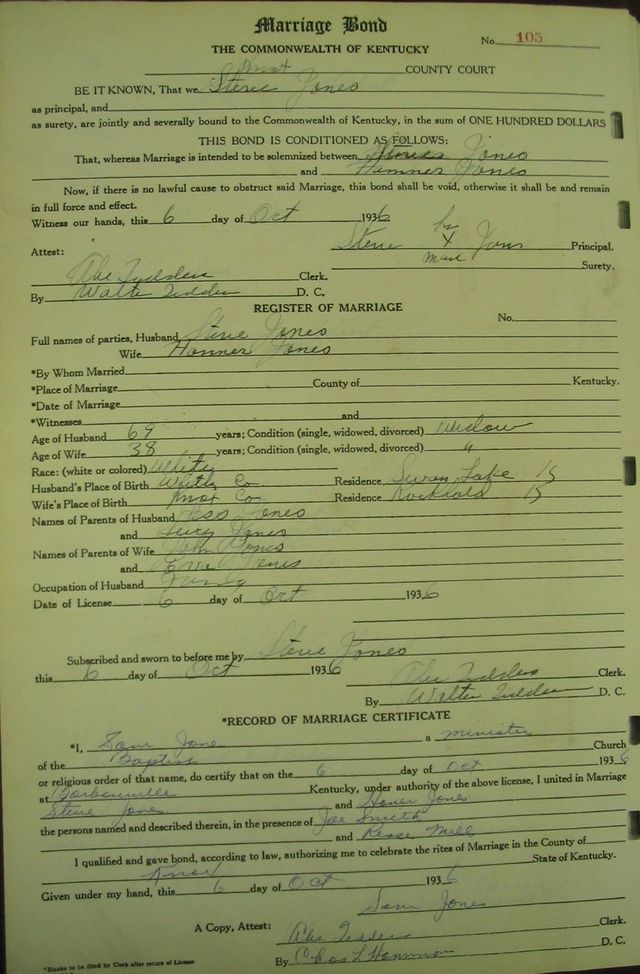 Marriage Bond
No. 105
THE COMMONWEALTH OF KENTUCKY
Knox COUNTY COURT
BE IT KNOWN, That we Steve Jones
as principal, and
as surety, are jointly and severally bound to the Commonwealth of Kentucky, in the sum of ONE HUNDRED DOLLARS
THIS BOND IS CONDITIONED AS FOLLOWS:
That, whereas Marriage is intended to be solemnized between Jones
and Jones
Now, if there is no lawful cause to obstruct said Marriage, this bond shall be void, otherwise it shall be and remain
in full force and effect.
Witness our hands, this 6 day of Oct 1936
Steve his X mark Jons Principal.
Attest:
Surety.
Abe Clerk.
By Walter D. C.
REGISTER OF MARRIAGE
No.
Full names of parties, Husband Steve Jones
Wife Honner Jones
*By Whom Married
*Place of Marriage County of Kentucky.
*Date of Marriage
*Witnesses and
Age of Husband 69 years; Condition (single, widowed, divorced) Widow
Age of Wife 38 years; Condition (single, widowed, divorced) "
Race: (white or colored) White
Husband's Place of Birth Co Residence Swan Lake
Wife's Place of Birth Knox Co Residence Rockhold
Names of Parents of Husband Jones
and Jones
Names of Parents of Wife John Jones
and Jones
Occupation of Husband
Date of License 6 day of Oct 1936
Subscribed and sworn to before me by Steve Jones
this 6 day of Oct 1936
Abe Clerk.
By Walter D. C.
*RECORD OF MARRIAGE CERTIFICATE
*I, Sam Jone a minister
of the Baptist Church
or religious order of that name, do certify that on the 6 day of Oct 1936
at Barbourville Kentucky, under authority of the above license, I united in Marriage
Steve Jones and Jones
the persons named and described therein, in the presence of Joe Smith
and Mill
I qualified and gave bond, according to law, authorizing me to celebrate the rites of Marriage in the County of
Knox State of Kentucky.
Given under my hand, this 6 day of Oct 1936
Sam Jones
A Copy, Attest: Abe Clerk.
By D. C.
*Blanks to be filled by Clerk after return of License